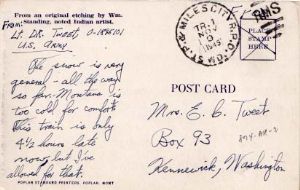 From an original etching by Wm.
Standing, noted Indian artist.
From:
Lt. DR. Tweet, O-
U.S. Army
The snow is very
general - all the way
so far. Montana is
too cold for comfort
this train is only
4½ hours late
now, but I've
allowed for that.
POPLAR STANDARD PRINTERS, POPLAR, MONT.
ST. P. & MILES CITY R.P.O.
TR. 1
NOV
1945
RMS
PLACE
STAMP
HERE
POST CARD
Mrs. E. C. Tweet
Box 93
Kennewick, Washington